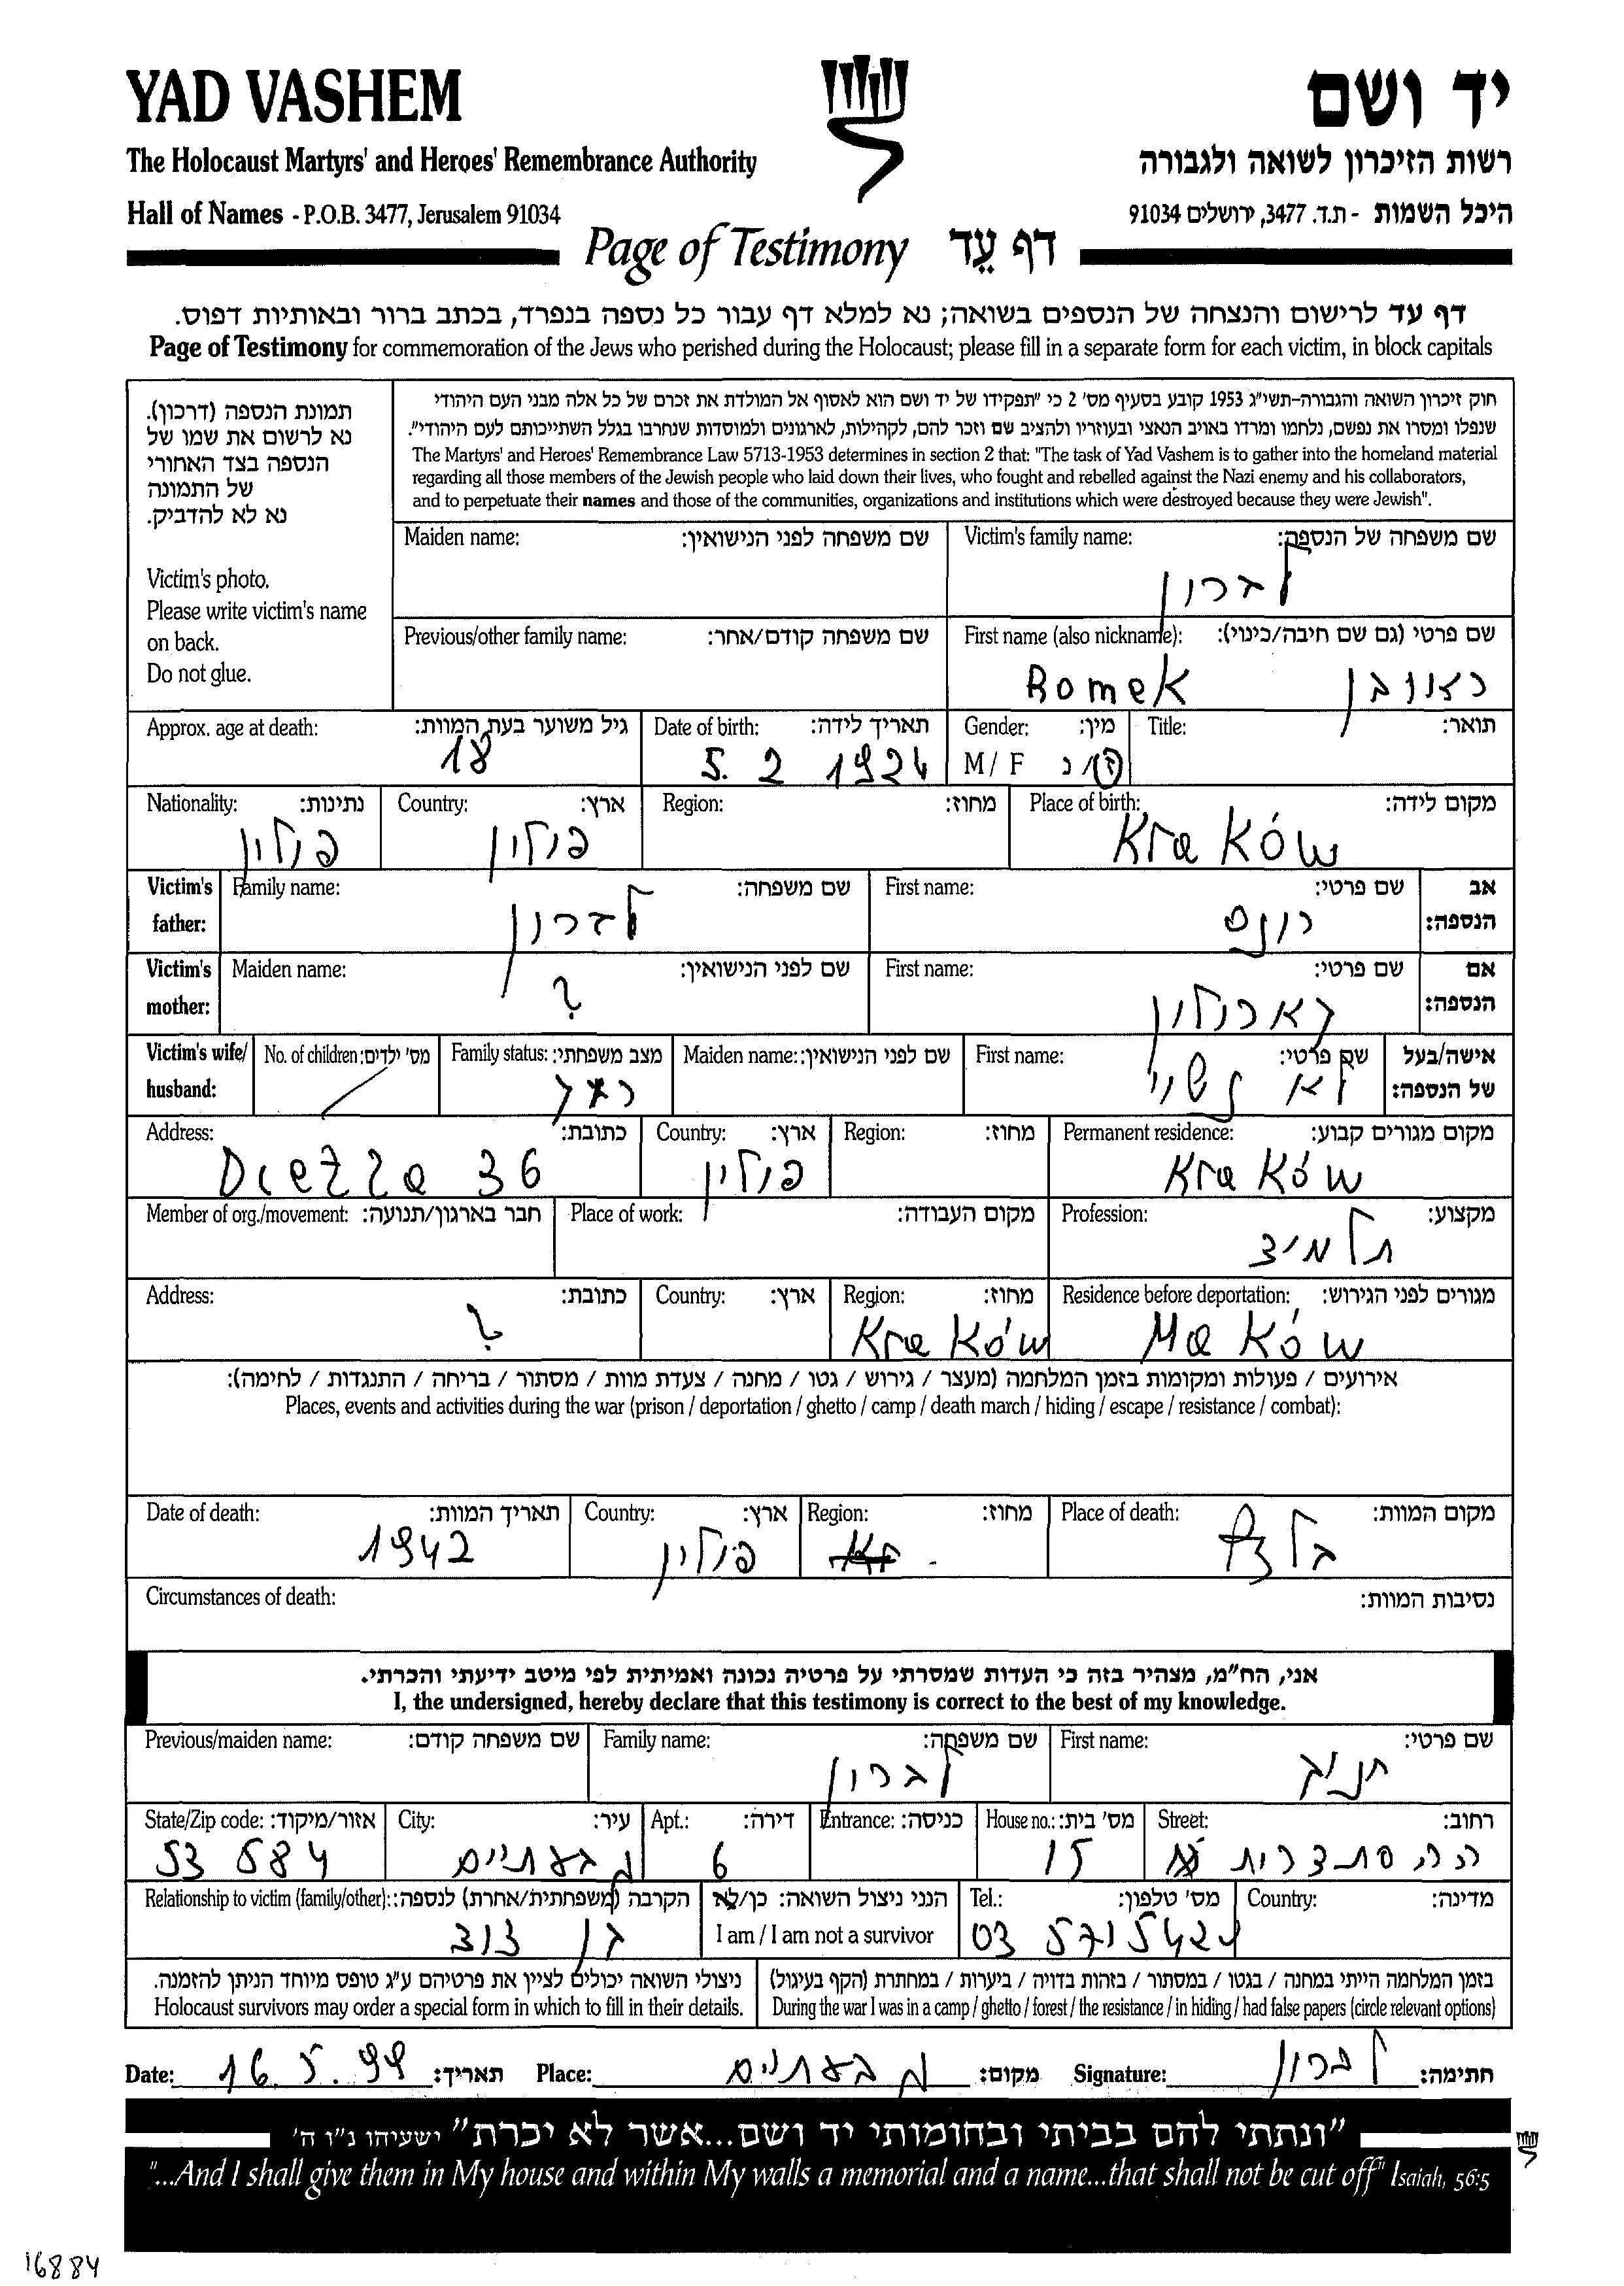 YAD VASHEM
יד ושם
The Holocaust Martyrs' and Heroes' Remembrance Authority
רשות הזיכרון לשואה ולגבורה
Hall of Names - P.O.B. 3477, Jerusalem 91034
היכל השמות - ת.ד. 3477, ירושלים 91034
Page of Testimony דף עֵד
דף עד לרישום והנצחה של הנספים בשואה; נא למלא דף עבור כל נספה בנפרד, בכתב ברור ובאותיות דפוס.
Page of Testimony for commemoration of the Jews who perished during the Holocaust; please fill in a separate form for each victim, in block capitals
תמונת הנספה (דרכון).
נא לרשום את שמו של
הנספה בצד האחורי
של התמונה
נא לא להדביק.
Victim's photo.
Please write victim's name
on back.
Do not glue.
חוק זיכרון השואה והגבורה-תשי"ג 1953 קובע בסעיף מס' 2 כי "תפקידו של יד ושם הוא לאסוף אל המולדת את זכרם של כל אלה מבני העם היהודי
שנפלו ומסרו את נפשם, נלחמו ומרדו באויב הנאצי ובעוזריו ולהציב שם וזכר להם, לקהילות, לארגונים ולמוסדות שנחרבו בגלל השתייכותם לעם היהודי".
The Martyrs' and Heroes' Remembrance Law 5713-1953 determines in section 2 that: "The task of Yad Vashem is to gather into the homeland material
regarding all those members of the Jewish people who laid down their lives, who fought and rebelled against the Nazi enemy and his collaborators,
and to perpetuate their names and those of the communities, organizations and institutions which were destroyed because they were Jewish".
Maiden name: שם משפחה לפני הנישואין: Victim's family name: שם משפחה של הנספה:
לברון
Previous/other family name: שם משפחה קודם/אחר: First name (also nickname): שם פרטי (גם שם חיבה/כינוי):
Romek ראובן
Approx. age at death: גיל משוער בעת המוות: Date of birth: תאריך לידה: Gender: מין: Title: תואר:
18 5. 2 1924 M / F ז/נ
Nationality: נתינות: Country: ארץ: Region: מחוז: Place of birth: מקום לידה:
פולין פולין Kraków
Victim's father: Family name: שם משפחה: First name: שם פרטי: אב הנספה:
לברון
Victim's mother: Maiden name: שם לפני הנישואין: First name: שם פרטי: אם הנספה:
?
Victim's wife/ husband: No. of children: מס' ילדים: Family status: מצב משפחתי: Maiden name: שם לפני הנישואין: First name: שם פרטי: אישה/בעל של הנספה:
רווק לא נשוי
Address: כתובת: Country: ארץ: Region: מחוז: Permanent residence: מקום מגורים קבוע:
36 פולין Kraków
Member of org./movement: חבר בארגון/תנועה: Place of work: מקום העבודה: Profession: מקצוע:
תלמיד
Address: כתובת: Country: ארץ: Region: מחוז: Residence before deportation: מגורים לפני הגירוש:
? Kraków Maków
אירועים / פעולות ומקומות בזמן המלחמה (מעצר / גירוש / גטו / מחנה / צעדת מוות / מסתור / בריחה / התנגדות / לחימה):
Places, events and activities during the war (prison / deportation / ghetto / camp / death march / hiding / escape / resistance / combat):
Date of death: תאריך המוות: Country: ארץ: Region: מחוז: Place of death: מקום המוות:
1942 פולין בלזץ
Circumstances of death: נסיבות המוות:
אני, הח"מ, מצהיר בזה כי העדות שמסרתי על פרטיה נכונה ואמיתית לפי מיטב ידיעתי והכרתי.
I, the undersigned, hereby declare that this testimony is correct to the best of my knowledge.
Previous/maiden name: שם משפחה קודם: Family name: שם משפחה: First name: שם פרטי:
לברון
State/Zip code: אזור/מיקוד: City: עיר: Apt.: דירה: Entrance: כניסה: House no.: מס' בית: Street: רחוב:
53 584 גבעתיים 6 15 ההסתדרות
Relationship to victim (family/other): הקרבה (משפחתית/אחרת) לנספה: הנני ניצול השואה: כן/לא Tel.: מס' טלפון: Country: מדינה:
בן דוד I am / I am not a survivor 03 5715424
ניצולי השואה יכולים לציין את פרטיהם ע"ג טופס מיוחד הניתן להזמנה.
Holocaust survivors may order a special form in which to fill in their details.
בזמן המלחמה הייתי במחנה / בגטו / במסתור / בזהות בדויה / ביערות / במחתרת (הקף בעיגול)
During the war I was in a camp / ghetto / forest / the resistance / in hiding / had false papers (circle relevant options)
Date: 16. 5. 99 תאריך: Place: גבעתיים מקום: Signature: לברון חתימה:
"ונתתי להם בביתי ובחומותי יד ושם...אשר לא יכרת" ישעיהו נ"ו ה'
"...And I shall give them in My house and within My walls a memorial and a name...that shall not be cut off" Isaiah, 56:5
16884